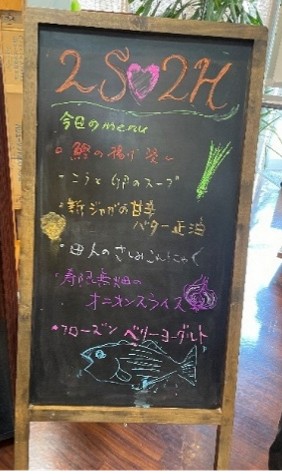 2S♥2H
今日のmenu
・鯵の揚げ浸し
・ニラと卵のスープ
・新ジャガの甘辛
バター正油
・田人のさしみこんにゃく
・寿限無畑の
オニオンスライス
・フローズン ベリーヨーグルト